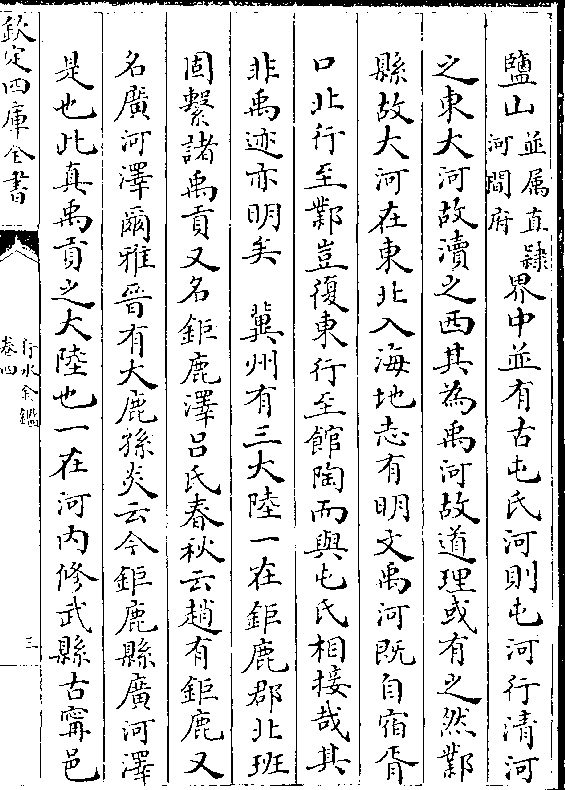 鹽山並属直隸河間府界中並有古屯氏河則屯河行清河
之東大河故瀆之西其為禹河故道理或有之然鄴
縣故大河在東北入海地志有明文禹河既自宿胥
口北行至鄴豈復東行至館陶而與屯氏相接哉其
非禹迹亦明矣　冀州有三大陸一在鉅鹿郡北班
固繫諸禹貢又名鉅鹿澤吕氏春秋云趙有鉅鹿又
名廣河澤爾雅晉有大鹿孫炎云今鉅鹿縣廣河澤
是也此真禹貢之大陸也一在河内修武縣古甯邑
欽定四庫全書
行水金鑑
卷四
三